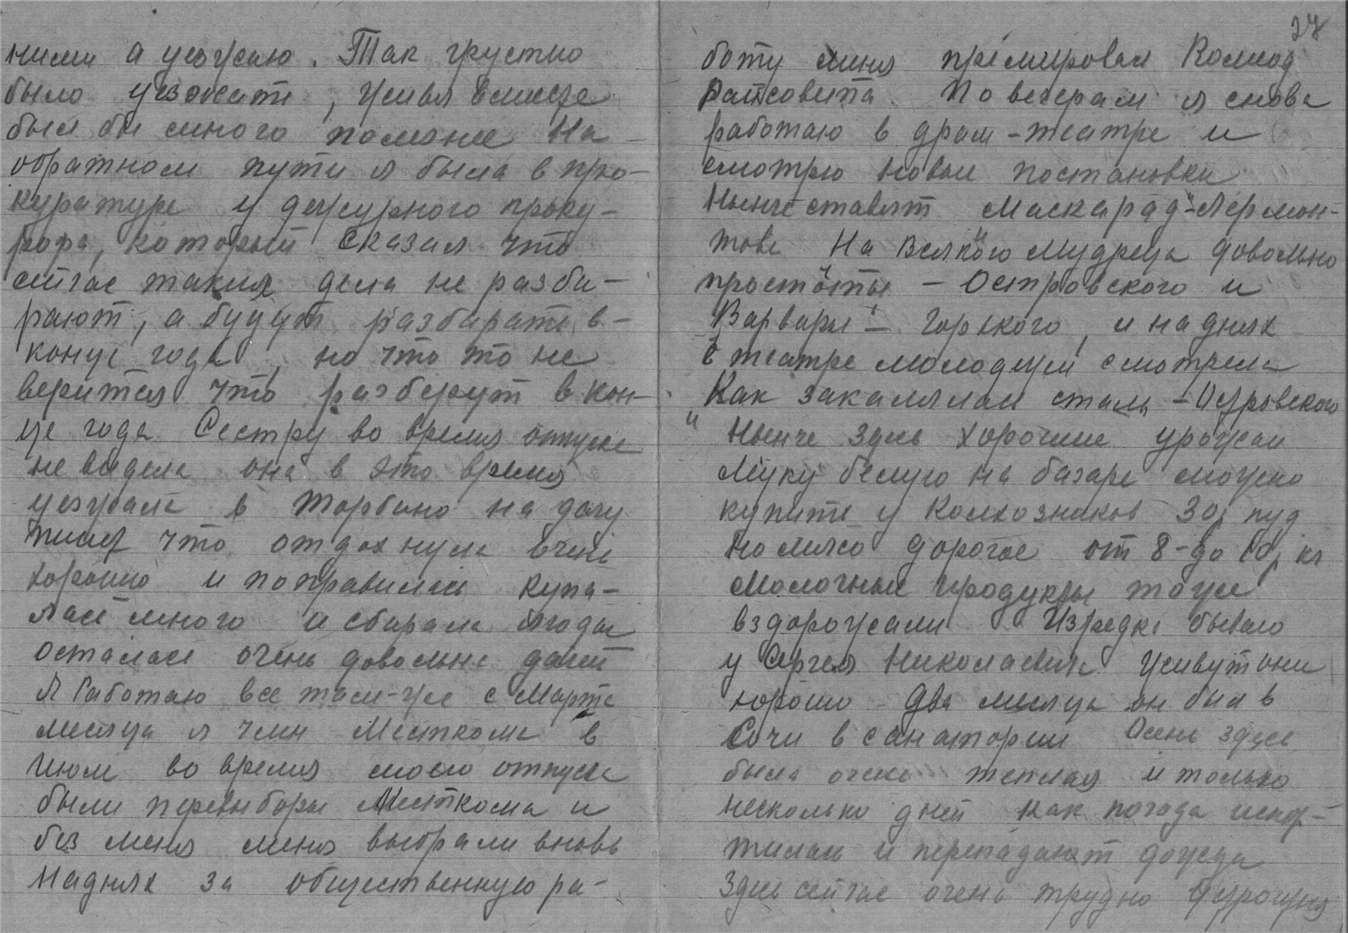 ними а уезжаю. Так грустно
было уезжать, живя вместе
был бы много полезнее На
обратном пути я была в про-
куратуре у дежурного проку-
рора, который сказал что
сейчас такия дела не разби-
рают, а будут разбирать в
конце года, но что то не
верится что разберут в кон-
це года. Сестру во время отпуска
не видела она в это время
уезжала в Торбино на дачу
пишет что отдохнула очень
хорошо и поправилась купа-
лась много и сбирала ягоды
осталась очень довольна дачей
Я работаю все там-же с Марта
месяца я член Месткома в
Июле во время моего отпуска
были перевыборы Месткома и
без меня меня выбрали вновь
На днях за общественную ра-
27
боту меня премировал Комход
Райсовета. По вечерам я снова
работаю в драм-театре и
смотрю новые постановки
Нынче ставят Маскарад"-Лермон-
това На всякого Мудреца довольно
простоты" - Островского и
Варвары" - Горького, и на днях
в театре молодежи смотрела
"Как закалялась сталь - Островского
Нынче здесь хороший урожай
Муку белую на базаре можно
купить у Колхозников 30р пуд
но мясо дорогое от 8-до 10р кг
Молочные продукты тоже
вздорожали. Изредка бываю
у Сергея Николаевича живут они
хорошо два месяца он был в
Сочи в санатории Осень здесь
была очень теплая и только
несколько дней как погода испор-
тилась и перепадают дожди
Здесь сейчас очень трудно